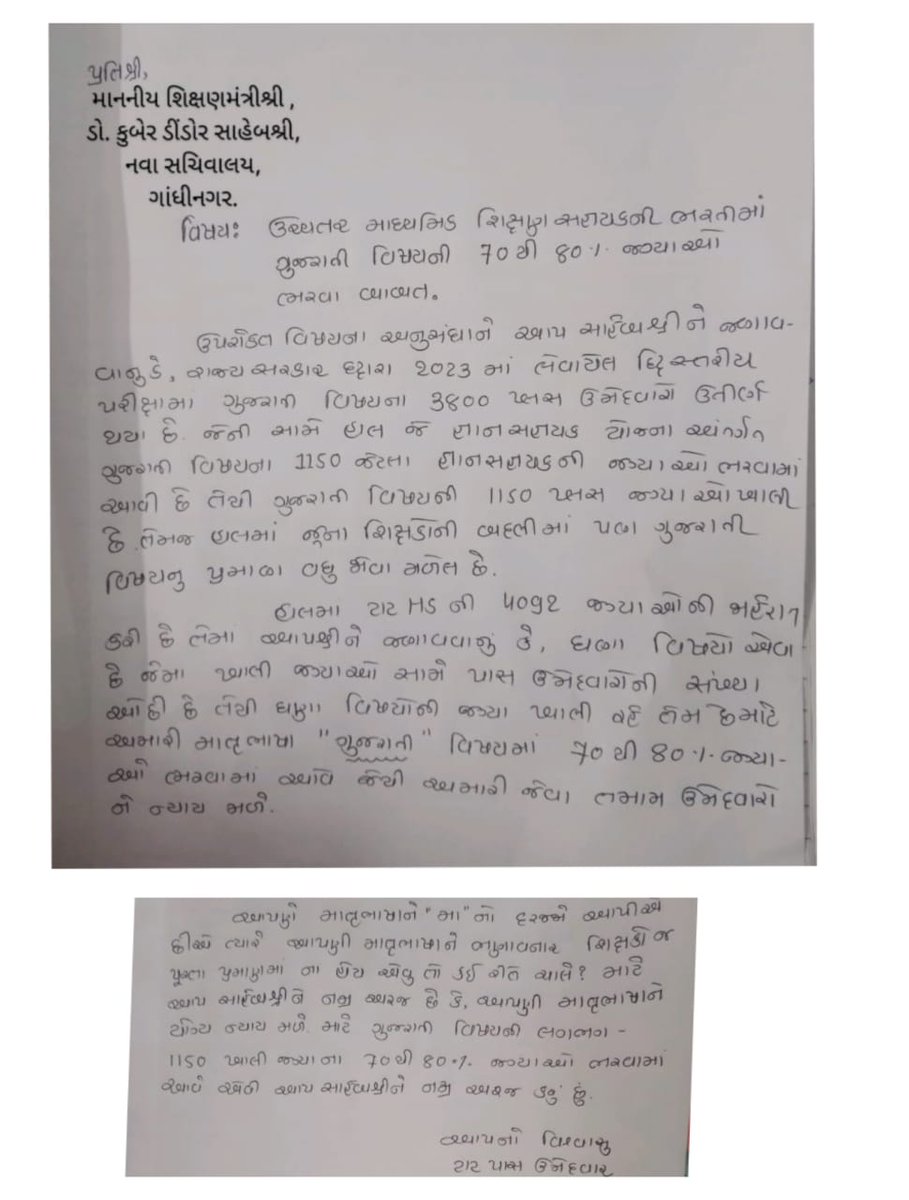 પ્રતિશ્રી,
માનનીય શિક્ષણમંત્રીશ્રી ,
ડો. કુબેર ડીંડોર સાહેબશ્રી,
નવા સચિવાલય,
ગાંધીનગર.
વિષયઃ ઉચ્ચતર માધ્યમિક શિક્ષણ સહાયકની ભરતીમાં
ગુજરાતી વિષયની 70 થી 80 % જગ્યાઓ
ભરવા બાબત.
ઉપરોક્ત વિષયના અનુસંધાને આપ સાહેબશ્રીને જણાવ-
વાનુકે, રાજ્ય સરકાર દ્વારા 2023 માં લેવાયેલ દ્વિસ્તરીય
પરીક્ષામા ગુજરાતી વિષયના 3800 પ્લસ ઉમેદવારો ઉતીર્ણ
થયા છે. જેની સામે હાલ જે જ્ઞાનસહાયક યોજના અંતર્ગત
ગુજરાતી વિષયના 1150 જેટલા જ્ઞાનસહાયકની જગ્યાઓ ભરવામાં
આવી છે તેથી ગુજરાતી વિષયની 1150 પ્લસ જગ્યાઓ ખાલી
છે. તેમજ હાલમાં જૂના શિક્ષકોની બદલીમાં પણ ગુજરાતી
વિષયનુ પ્રમાણ વધુ જોવા મળેલ છે.
હાલમાં ટાટ HS ની 4092 જગ્યાઓની જાહેરાત
કરી છે તેમાં આપશ્રીને જણાવવાનું કે, ઘણા વિષયો એવા
છે જેમા ખાલી જગ્યાઓ સામે પાસ ઉમેદવારોની સંખ્યા
ઓછી છે તેથી ઘણા વિષયોની જગ્યા ખાલી રહે તેમ છે માટે
અમારી માતૃભાષા "ગુજરાતી" વિષયમાં 70 થી 80 % જગ્યા-
ઓ ભરવામાં આવે જેથી અમારી જેવા તમામ ઉમેદવારો
ને ન્યાય મળે.
આપણે માતૃભાષાને "મા" નો દરજ્જો આપીએ
છીએ ત્યારે આપણી માતૃભાષાને ભણાવનાર શિક્ષકો જ
પૂરતા પ્રમાણમાં ના હોય એવુ તો કઈ રીતે ચાલે? માટે
આપ સાહેબશ્રીને નમ્ર અરજ છે કે, આપણી માતૃભાષાને
યોગ્ય ન્યાય મળે માટે ગુજરાતી વિષયની લગભગ -
1150 ખાલી જગ્યાના 70 થી 80 % જગ્યાઓ ભરવામાં
આવે એવી આપ સાહેબશ્રીને નમ્ર અરજ કરું છું.
આપનો વિશ્વાસુ
ટાટ પાસ ઉમેદવાર